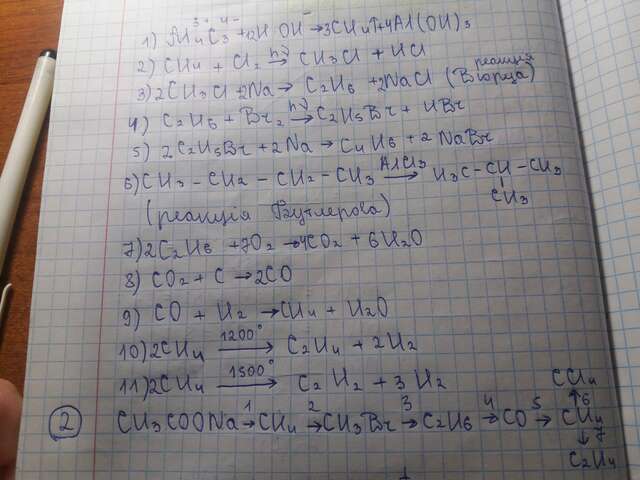 3+ 4-
1) Al4C3 + 12H OH⁻ → 3CH4↑ + 4Al(OH)3
2) CH4 + Cl2 hν→ CH3Cl + HCl
3) 2CH3Cl + 2Na → C2H6 + 2NaCl (реакція Вюрца)
4) C2H6 + Br2 hν→ C2H5Br + HBr
5) 2C2H5Br + 2Na → C4H6 + 2NaBr
6) CH3 – CH2 – CH2 – CH3 AlCl3→ H3C – CH – CH3
CH3
(реакція Бутлерова)
7) 2C2H6 + 7O2 → 4CO2 + 6H2O
8) CO2 + C → 2CO
9) CO + H2 → CH4 + H2O
10) 2CH4 1200°→ C2H4 + 2H2
11) 2CH4 1500°→ C2H2 + 3H2
CCl4
↑6
2 CH3COONa 1→ CH4 2→ CH3Br 3→ C2H6 4→ CO 5→ CH4
↓7
C2H4